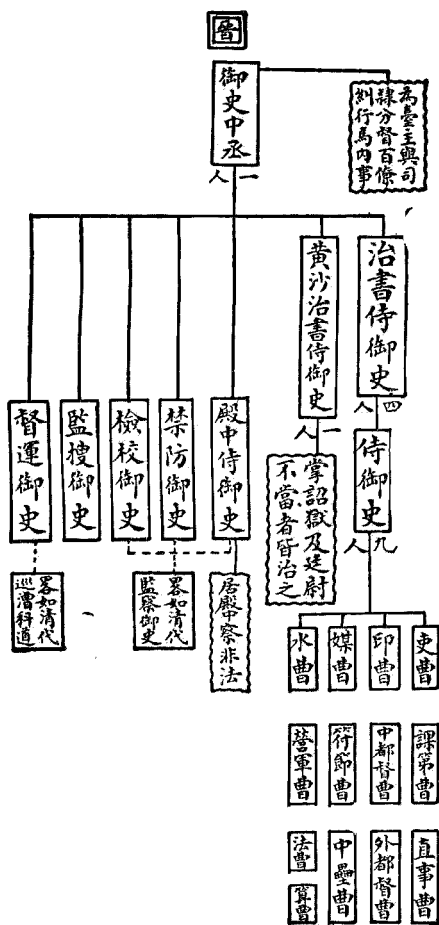 晉
御史中丞
一人
為臺主與司
隸分督百僚
糾行馬內事
治書侍御史
四人
黃沙治書侍御史
一人
掌詔獄及廷尉
不當者皆治之
侍御史
九人
殿中侍御史
居殿中察非法
禁防御史
檢校御史
畧如清代
監察御史
監搜御史
督運御史
畧如清代
巡漕科道
吏曹
課第曹
直事曹
印曹
中都督曹
外都督曹
媒曹
符節曹
中壘曹
水曹
營軍曹
法曹
算曹